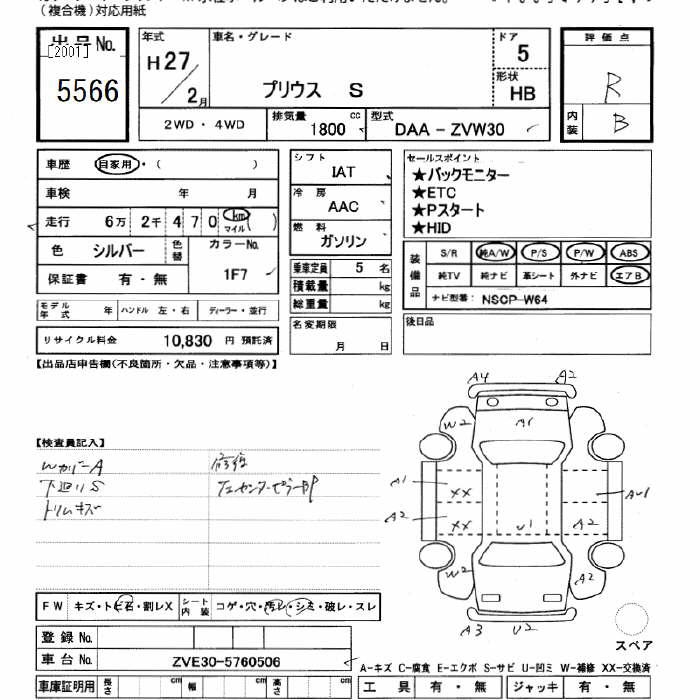 (複合機)対応用紙
出品No.
[200T]
5566
年式
H27
2月
車名・グレード
プリウス S
ドア
5
形状
HB
2WD ・ 4WD
排気量
1800
cc
型式
DAA - ZVW30
評価点
R
内装
B
車歴
自家用・( )
車検 年 月
走行 6万 2千 4 7 0 km マイル ( )
色 シルバー
色替
カラーNo.
1F7
保証書 有・無
シフト
IAT
冷房
AAC
燃料
ガソリン
乗車定員 5 名
積載量 kg
総重量 kg
セールスポイント
★バックモニター
★ETC
★Pスタート
★HID
装備品
S/R 純A/W P/S P/W ABS
純TV 純ナビ 革シート 外ナビ エアB
ナビ型番: NSCP-W64
モデル年式 年 ハンドル 左・右 ディーラー・並行
リサイクル料金 10,830 円 預託済
名変期限
月 日
後日品
【出品店申告欄(不良箇所・欠品・注意事項等)】
【検査員記入】
WカバーA
下廻りS
トリムキズ
修復
A4 A2
W2 A1
A1 XX AU1
A2 XX U1 A2
W2 A2
A3 U2
スペア
FW キズ・トビ石・割レX
シート内装 コゲ・穴・汚レ・シミ・破レ・スレ
登録No.
車台No. ZVE30-5760506
A-キズ C-腐食 E-エクボ S-サビ U-凹ミ W-補修 XX-交換済
車庫証明用 長さ cm 幅 cm 高さ cm
工具 有・無 ジャッキ 有・無